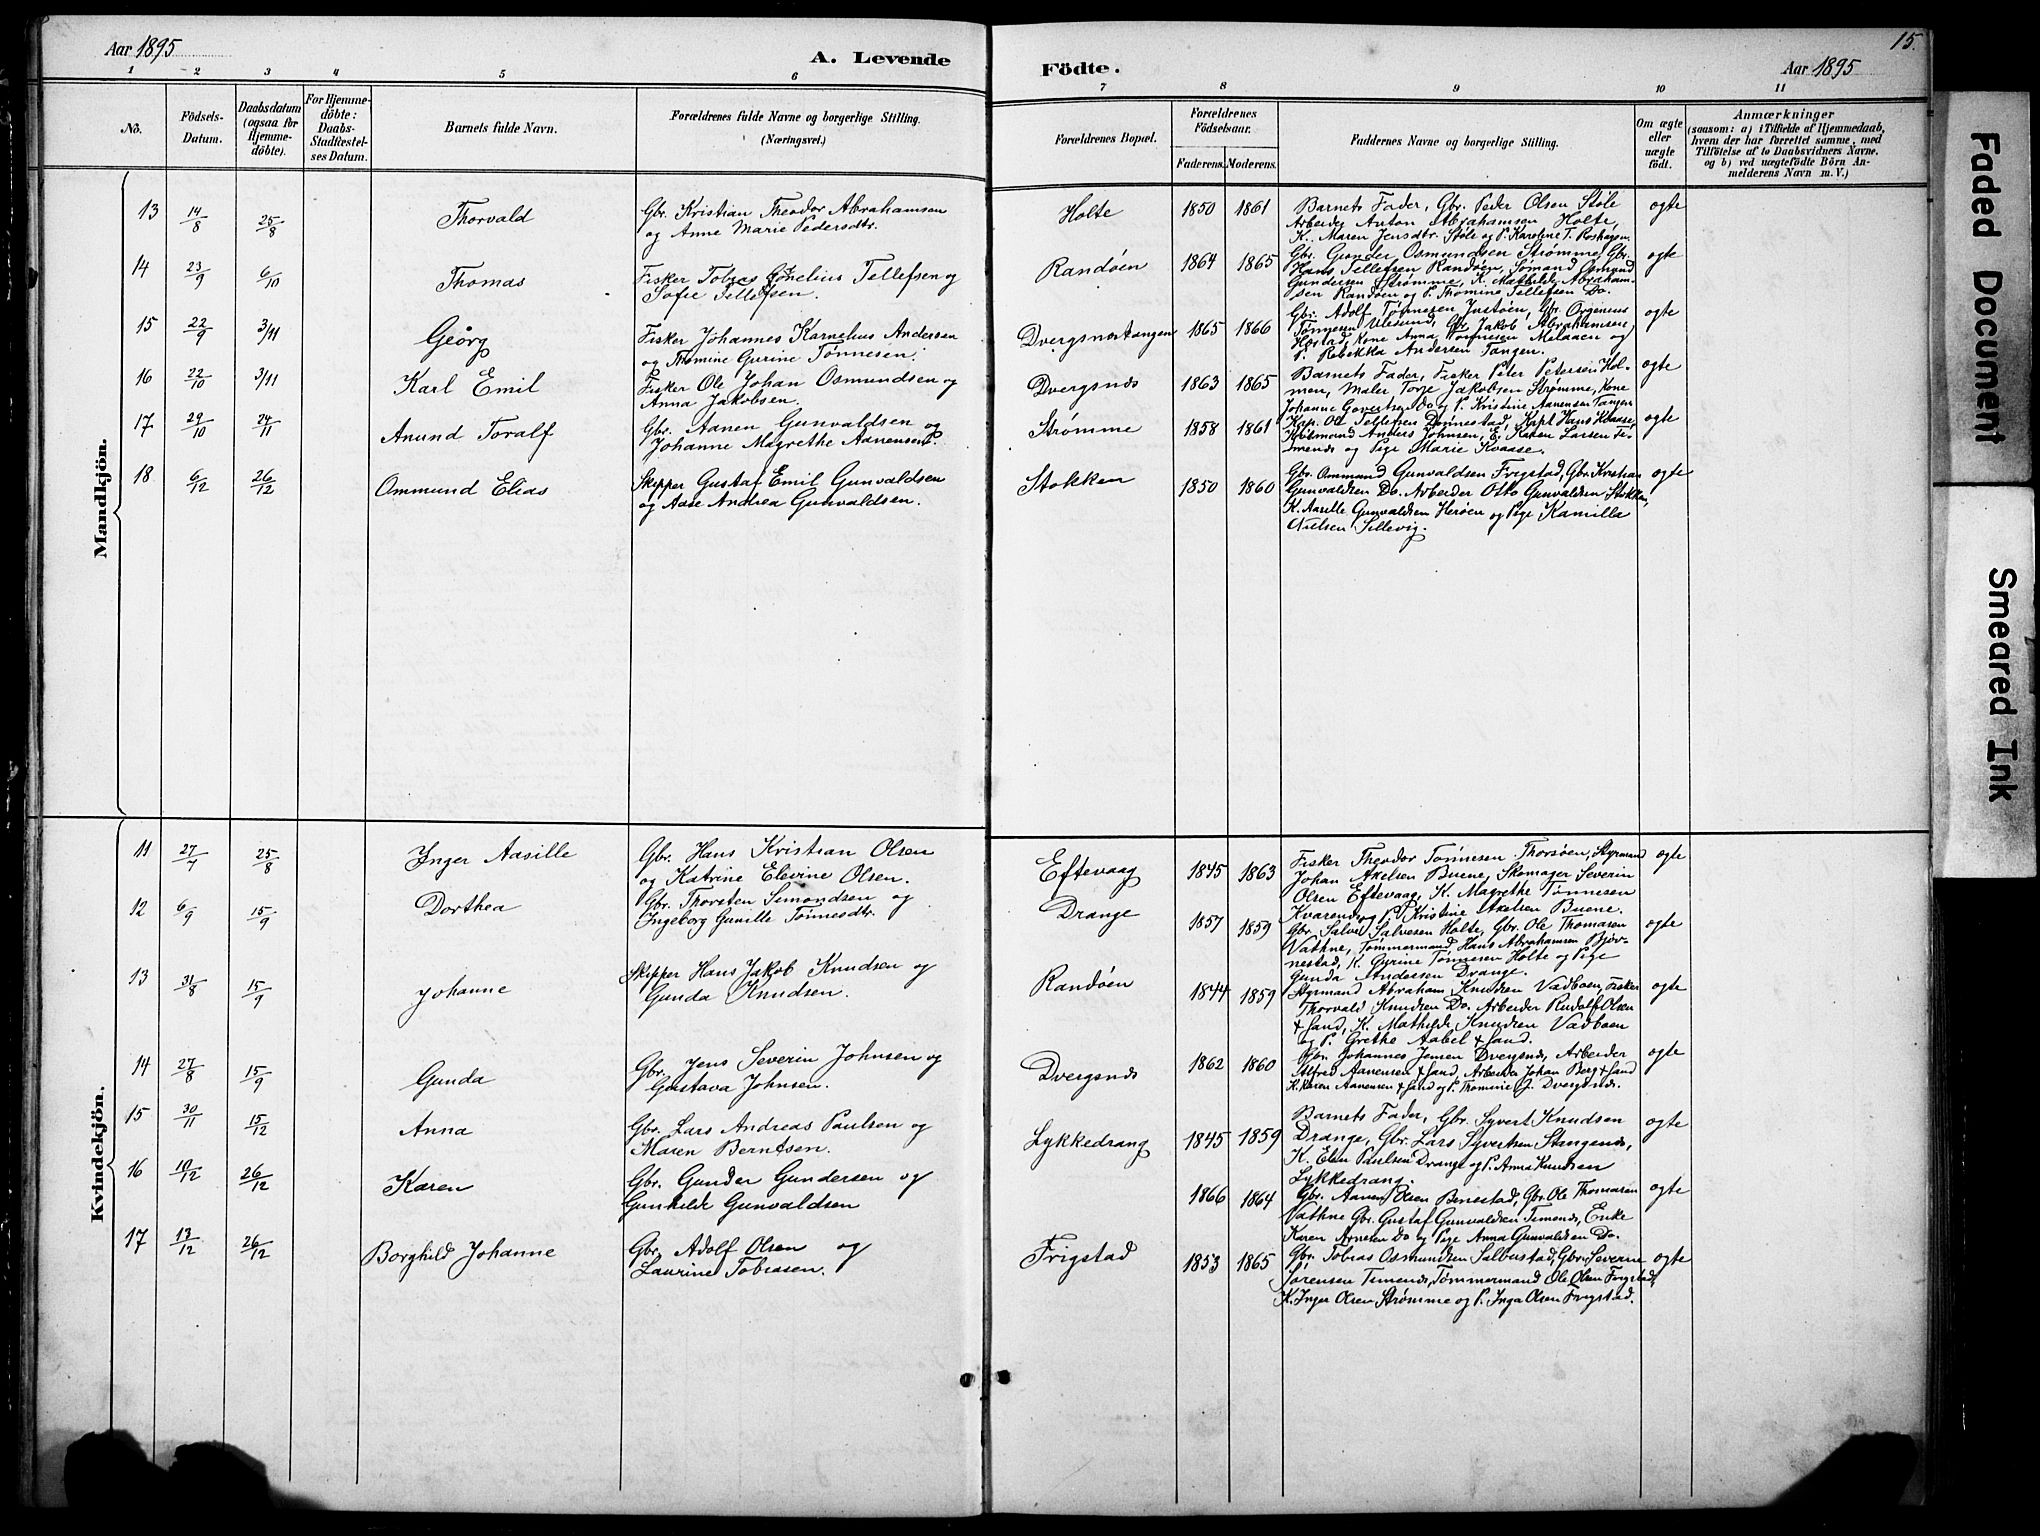 Aar 1895
A. Levende
Födte.
Aar 1895
15.
1 2 3 4 5 6 7 8 9 10 11
No.
Födsels-
Datum.
Daabsdatum
(ogsaa for
Hjemme-
döbte).
For Hjemme-
döbte:
Daabs-
Stadfæstel-
ses Datum.
Barnets fulde Navn.
Forældrenes fulde Navne og borgerlige Stilling.
(Næringsvei.)
Forældrenes Bopæl.
Forældrenes
Födselsaar.
Faderens. Moderens.
Faddernes Navne og borgerlige Stilling.
Om ægte
eller
uægte
födt.
Anmærkninger
(saasom: a) i Tilfælde af Hjemmedaab,
hvem der har forrettet samme, med
Tilföielse af to Daabsvidners Navne,
og b) ved uægtefödte Börn An-
melderens Navn m. V.)
Mandkjön.
13 14/8 25/8 Thorvald
Gbr. Kristian Theodor Abrahamsen
og Anne Marie Pedersdtr.
Holte 1850 1861
Barnets Fader, Gbr. Peder Olsen Støle
Arbeider Anton Abrahamsen Holte,
K. Maren Jensdtr. Støle og P. Karoline T. Roshagen
ægte
14 23/9 6/10 Thomas
Fisker Tobias Cornelius Tellefsen og
Sofie Tellefsen.
Randøen 1864 1865
Gbr. Gunder Osmundsen Strømme, Gbr.
Hans Tellefsen Randøen, Sømand Osmund
Gundersen Strømme, K. Mathilde Abraham-
sen Randøen og P. Thomine Tellefsen Do.
ægte
15 22/9 3/11 Georg
Fisker Johannes Kornelius Andersen
og Thomine Gurine Tønnesen.
Dvergsnestangen 1865 1866
Gbr. Adolf Tønnesen Justøen, Gbr. Orgenius
Tønnesen Ulesund, Gbr. Jakob Abrahamsen
Hærstad, Kone Anna Tønnesen Melaaen og
P. Rebekka Andersen Tangen.
ægte
16 22/10 3/11 Karl Emil
Fisker Ole Johan Osmundsen og
Anna Jakobsen.
Dvergsnes 1863 1865
Barnets Fader, Fisker Peter Petersen Hol-
men, Maler Torje Jakobsen Strømme, Kone
Johanne Govertsen Do og P. Kristine Aanensen Tangen
ægte
17 29/10 24/11 Anund Toralf
Gbr. Aanen Gunvaldsen og
Johanne Magrethe Aanensen.
Strømme 1858 1861
Kap. Ole Tellefsen Dønnestad, Kapt. Hans Kvaase,
Kvilmand Anders Johnsen, E. Karen Larsen Ti-
menes og Pige Marie Kvaase.
ægte
18 6/12 26/12 Ommund Elias
Skipper Gustaf Emil Gunvaldsen
og Aase Andrea Gunvaldsen.
Stokken 1850 1860
Gbr. Ommund Gunvaldsen Frigstad, Gbr. Kristian
Gunvaldsen Do. Arbeider Otto Gunvaldsen Stokken,
K. Aasille Gunvaldsen Herøen og Pige Kamilla
Nielsen Sellevig.
ægte
Kvindekjön.
11 27/7 25/8 Inger Aasille
Gbr. Hans Kristian Olsen
og Katrine Elevine Olsen.
Eftevaag 1845 1863
Fisker Theodor Tønnesen Thorsøen, Styrmand
Johan Akelsen Buene, Skomager Severin
Olsen Eftevaag, K. Magrethe Tønnesen
Kvarenes og P. Kristine Akelsen Buene.
ægte
12 6/9 15/9 Dorthea
Gbr. Thorsten Simondsen og
Ingeborg Gunille Tønnesdtr.
Drange 1857 1859
Gbr. Salve Salvesen Holte, Gbr. Ole Thomasen
Vathne, Tømmermand Hans Abrahamsen Bjør-
nestad, K. Gurine Tønnesen Holte og Pige
Gunda Andersen Drange.
ægte
13 31/8 15/9 Johanne
Skipper Hans Jakob Knudsen og
Gunda Knudsen.
Randøen 1844 1859
Styrmand Abraham Knudsen Vadboen, Fisker
Thorvald Knudsen Do. Arbeider Rudolf Olsen
X sand, K. Mathilde Knudsen Vadboen
og P. Grethe Aabel X sand.
ægte
14 27/8 15/9 Gunda
Gbr. Jens Severin Johnsen og
Gustava Johnsen.
Dvergsnes 1862 1860
Gbr. Johannes Jensen Dvergsnes, Arbeider
Alfred Aanensen X sand, Arbeider Johan Berg X sand
K. Karen Aanensen X sand og P. Thomine J. Dvergsnes.
ægte
15 30/11 15/12 Anna
Gbr. Lars Andreas Paulsen og
Maren Berntsen.
Lykkedrang 1845 1859
Barnets Fader, Gbr. Syvert Knudsen
Drange, Gbr. Lars Syvertsen Stangenes,
K. Elen Paulsen Drange og P. Anna Knudsen
Lykkedrang.
ægte
16 10/12 26/12 Karen
Gbr. Gunder Gundersen og
Gunhilde Gunvaldsen
1866 1864
Gbr. Aanen Olsen Benestad, Gbr. Ole Thomasen
Vathne Gbr. Gustaf Gunvaldsen Timenes, Enke
Karen Arnesen Do og Pige Anna Gunvaldsen Do.
ægte
17 13/12 26/12 Borghild Johanne
Gbr. Adolf Olsen og
Laurine Tobiasen.
Frigstad 1853 1865
Gbr. Tobias Osmundsen Salbustad, Gbr. Severin
Sørensen Timenes, Tømmermand Ole Olsen Frigstad,
K. Inger Olsen Strømme og P. Inga Olsen Frigstad.
ægte
Faded Document
Smeared Ink